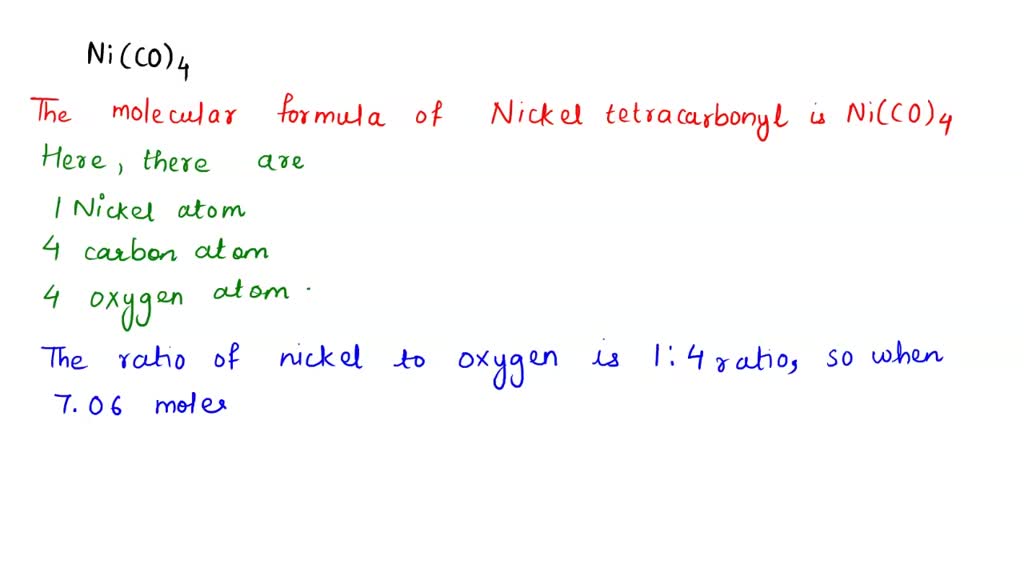 Ni(CO)4
The molecular formula of Nickel tetracarbonyl is Ni(CO)4
Here, there are
1 Nickel atom
4 carbon atom
4 oxygen atom .
The ratio of nickel to oxygen is 1:4 ratio, so when
7.06 moles